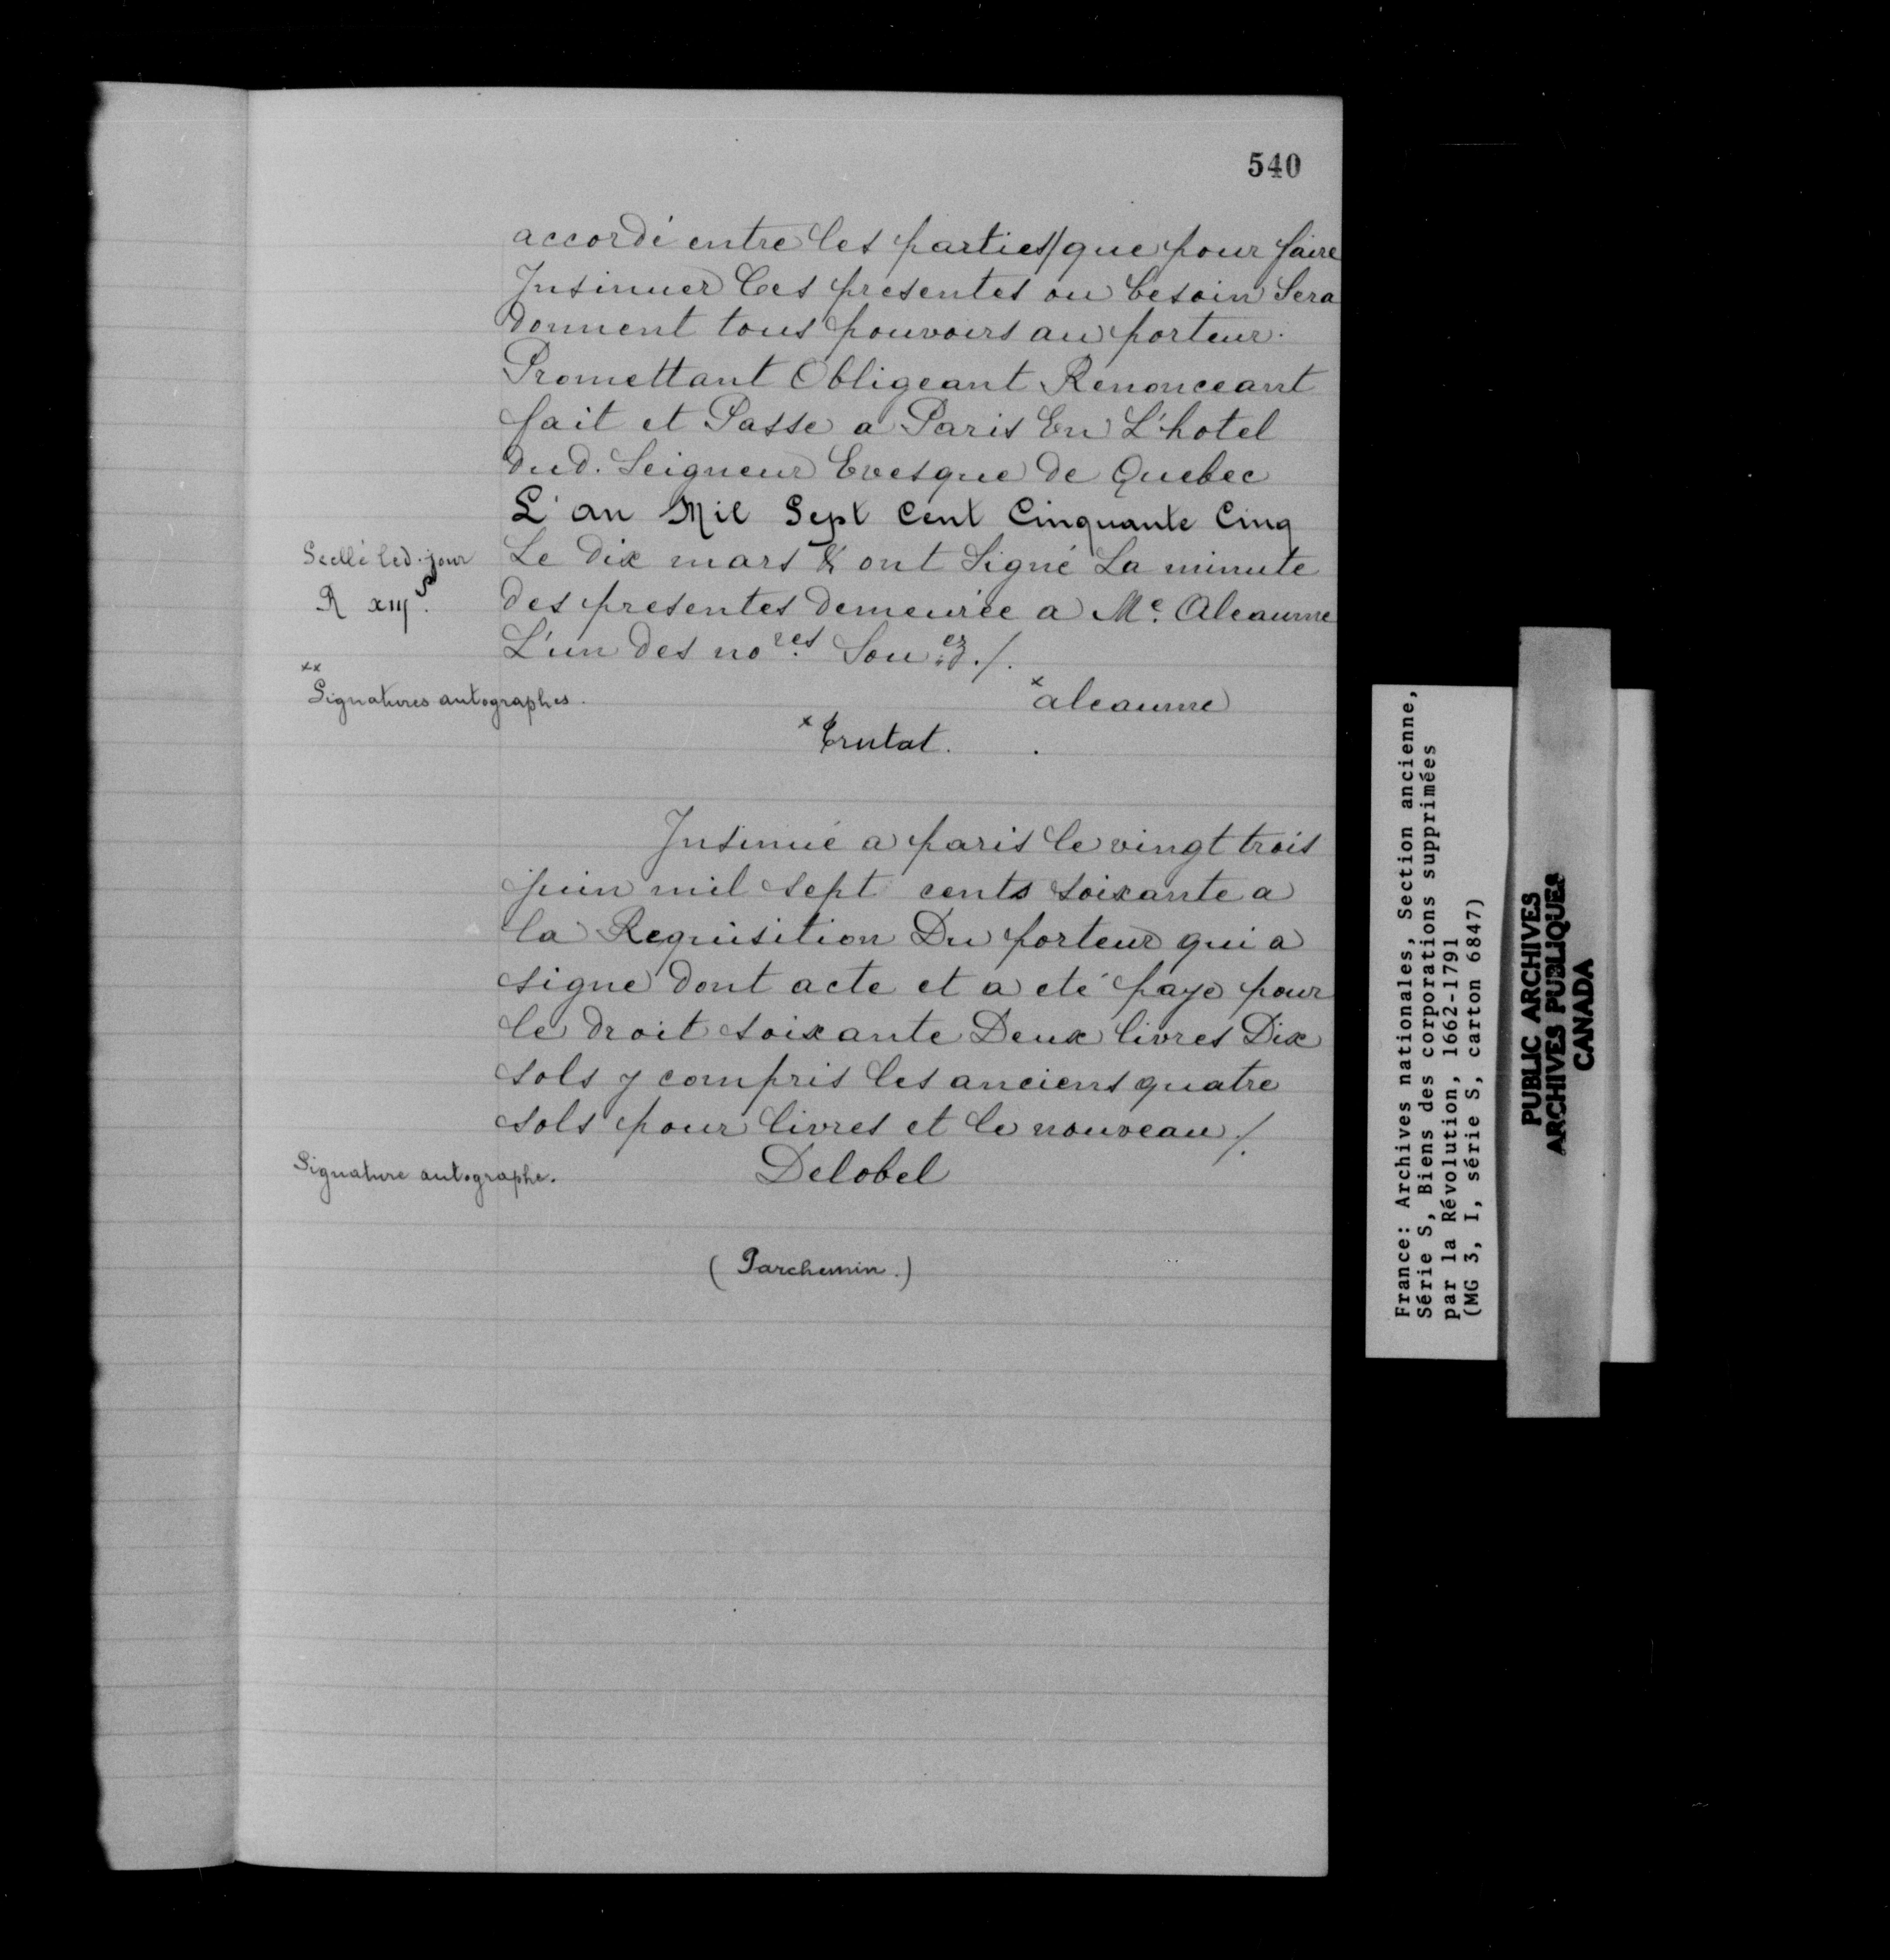 540
accordé entre les parties/que pour faire
Insinuer Ces presentes ou besoin Sera
donnent tous pouvoirs au porteur.
Promettant Obligeant Renonceant
fait et Passe a Paris En L'hotel
dud. Seigneur Evesque de Quebec
L'an Mil Sept Cent Cinquante Cinq
Scellé led. jour
Le dix mars & ont Signé La minute
R xiij s.
des presentes demeurée a Me. Aleaume
L'un des nores Souer d./.
xx
Signatures autographes.
x aleaume
x Erutat.
Insinué a paris le vingt trois
juin mil sept cents soixante a
la Requisition Du porteur qui a
signe dont acte et a eté paye pour
le droit soixante Deux livres Dix
sols y compris les anciens quatre
sols pour livres et le nouveau /.
Signature autographe.
Delobel
(Parchemin.)
France: Archives nationales, Section ancienne,
Série S, Biens des corporations supprimées
par la Révolution, 1662-1791
(MG 3, I, série S, carton 6847)
PUBLIC ARCHIVES
ARCHIVES PUBLIQUES
CANADA